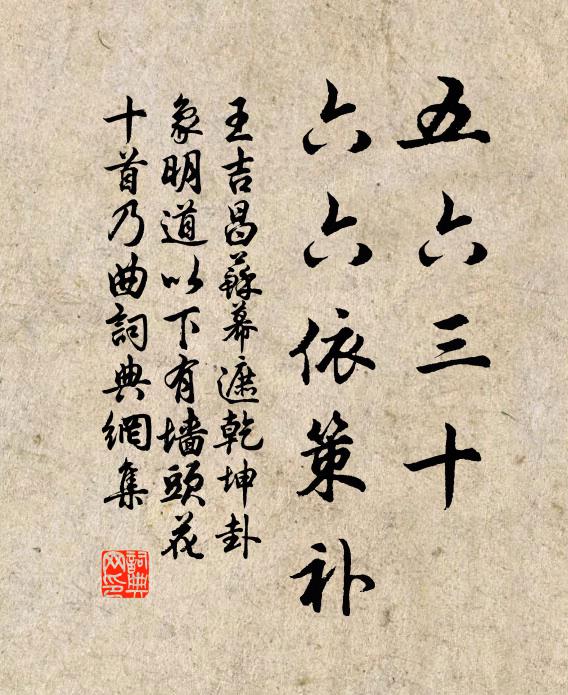 五六三十
六六依策补
王吉昌蘇幕遮乾坤卦
象明道以下有墻頭花
十首乃曲詞典網集
詞典
网印